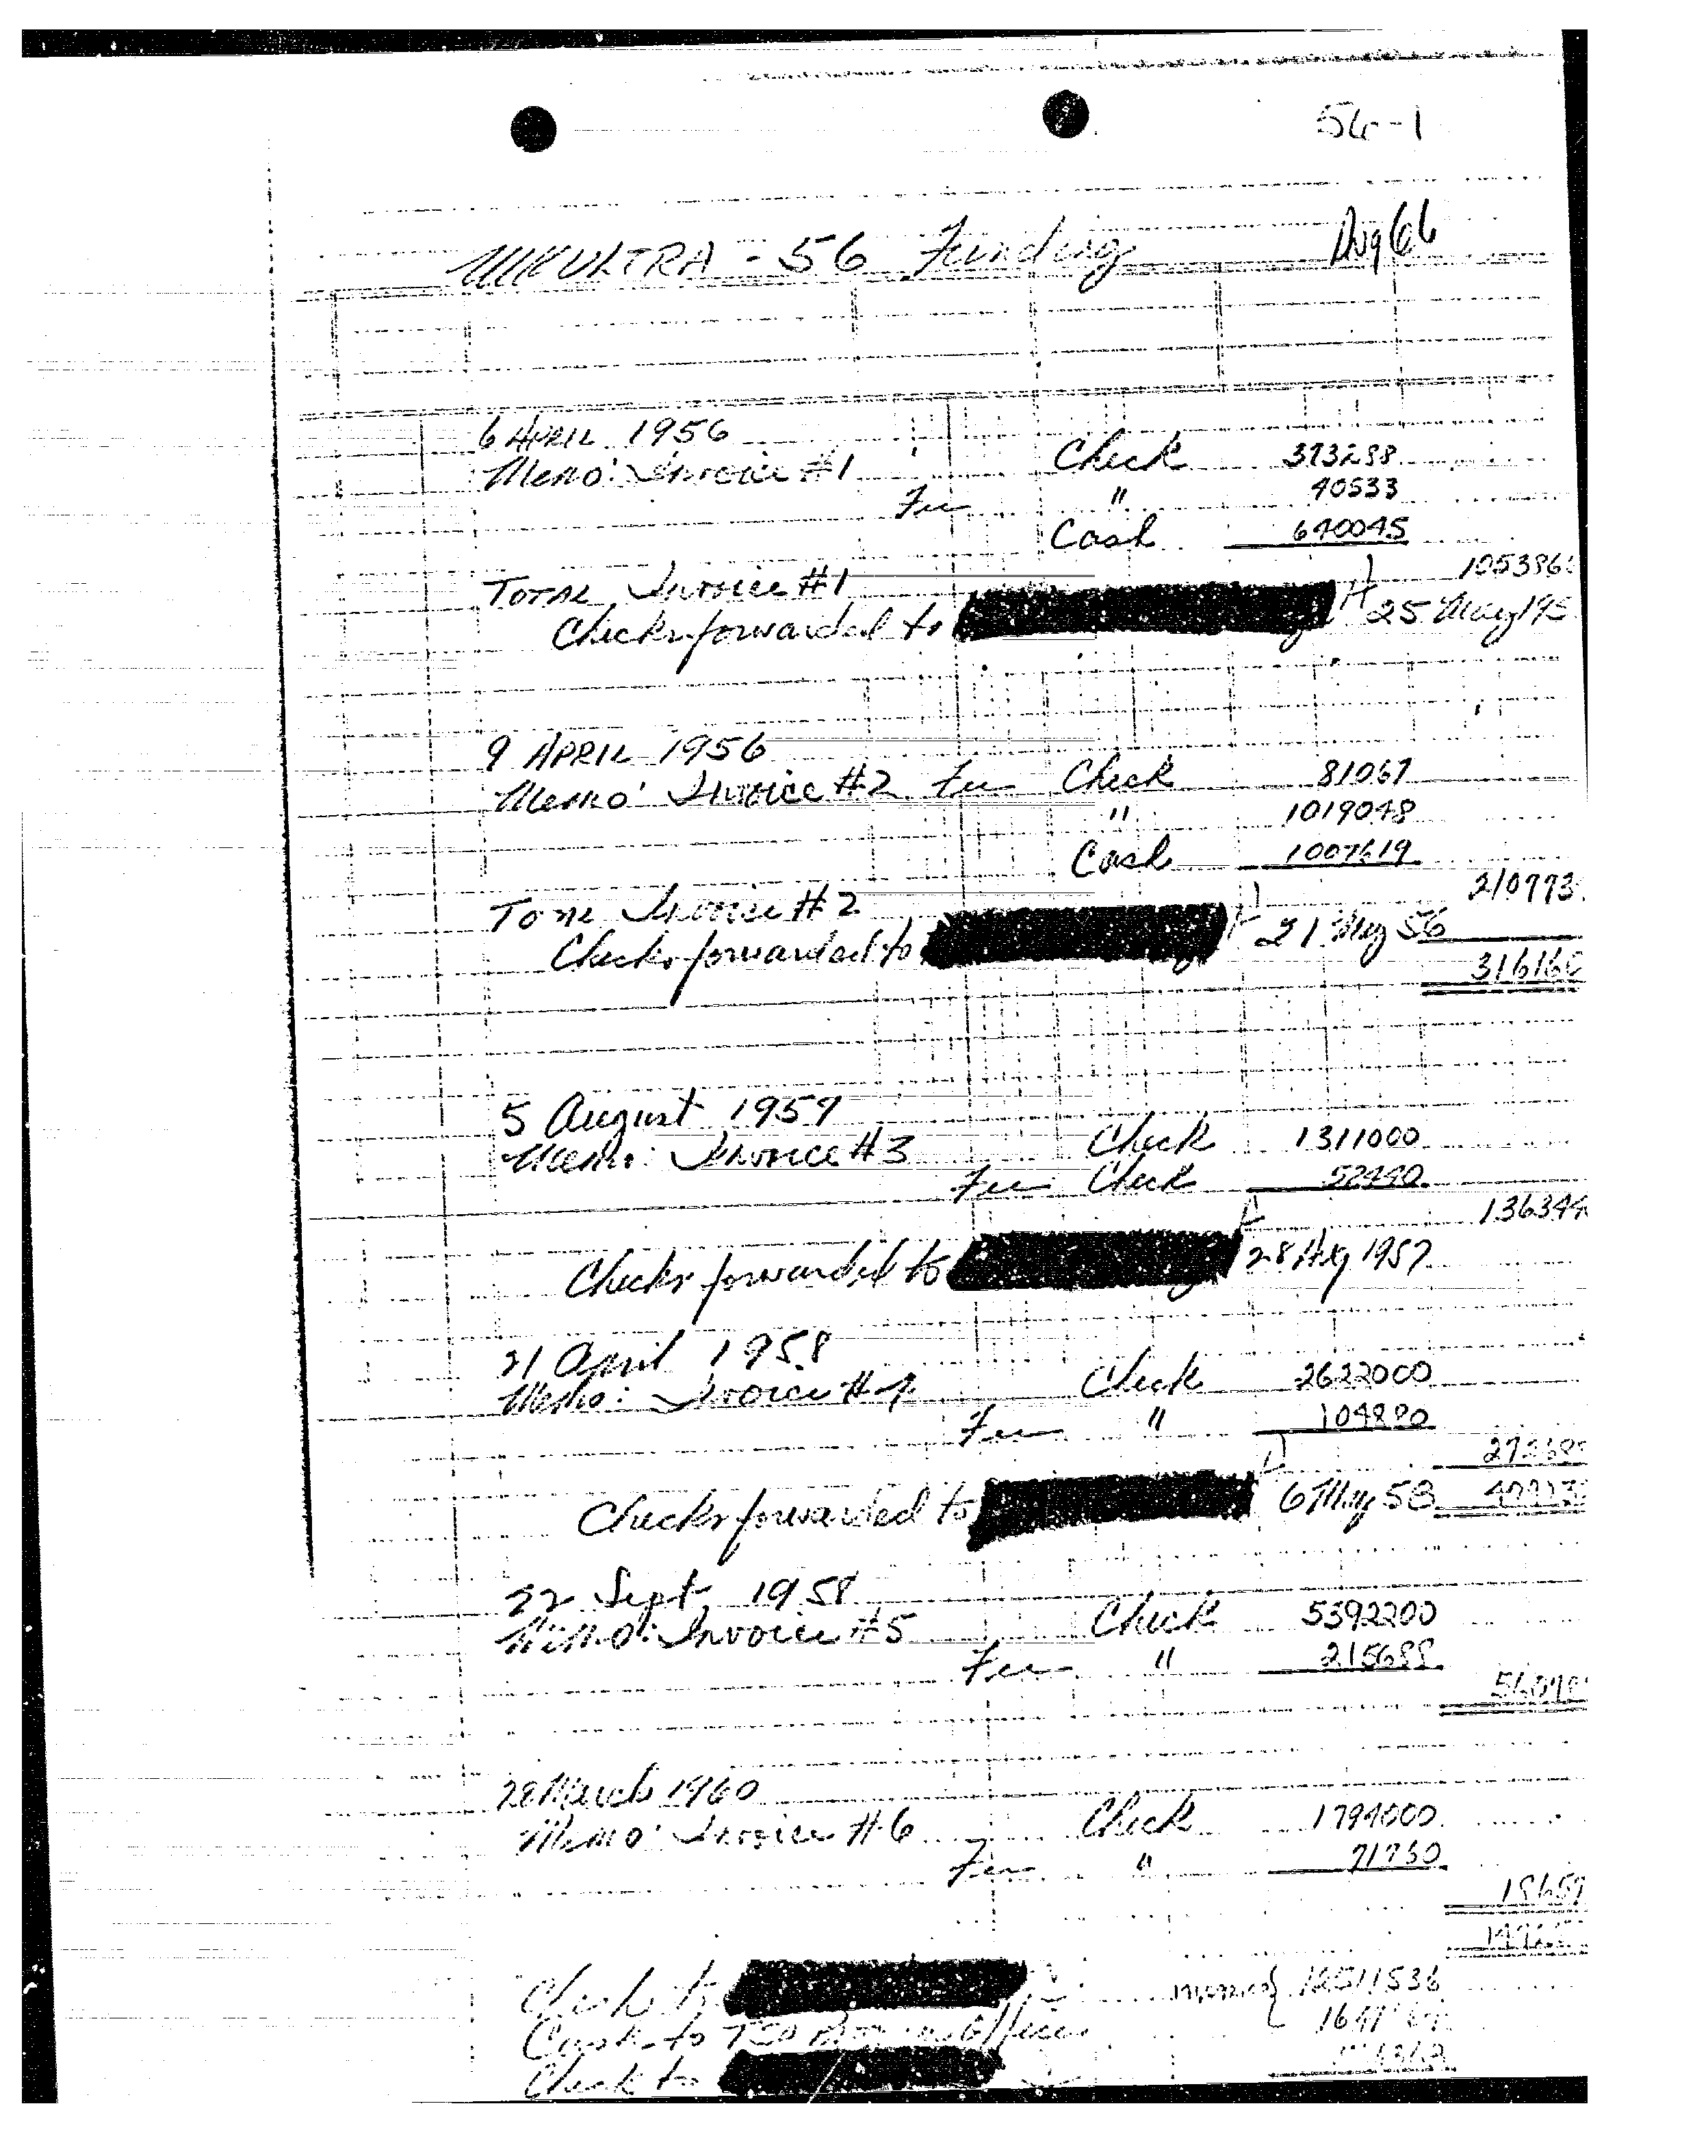 56-1
MKULTRA - 56 Funding Aug 66
6 APRIL 1956
Memo: Invoice #1 Check 373288
Fee " 40533
Cash 640045
TOTAL Invoice #1 105386
Checks forwarded to 25 May 195
9 APRIL 1956
Memo: Invoice #2 Fee Check 81067
" 1019048
Cash 1007619
Total Invoice #2 210773
Checks forwarded to 21 May 56
316160
5 August 1957
Memo: Invoice #3 Check 1311000
Fee Check 52440
136344
Checks forwarded to 28 Aug 1957
21 April 1958
Memo: Invoice #4 Check 2622000
Fee " 104880
27268
Checks forwarded to 6 May 58
22 Sept. 1958
Memo: Invoice #5 Check 5392200
Fee " 215688
5607
28 March 1960
Memo: Invoice #6 Check 1794000
Fee " 71760
18657
Check to 12511536
Cash to TSD Office
Check to